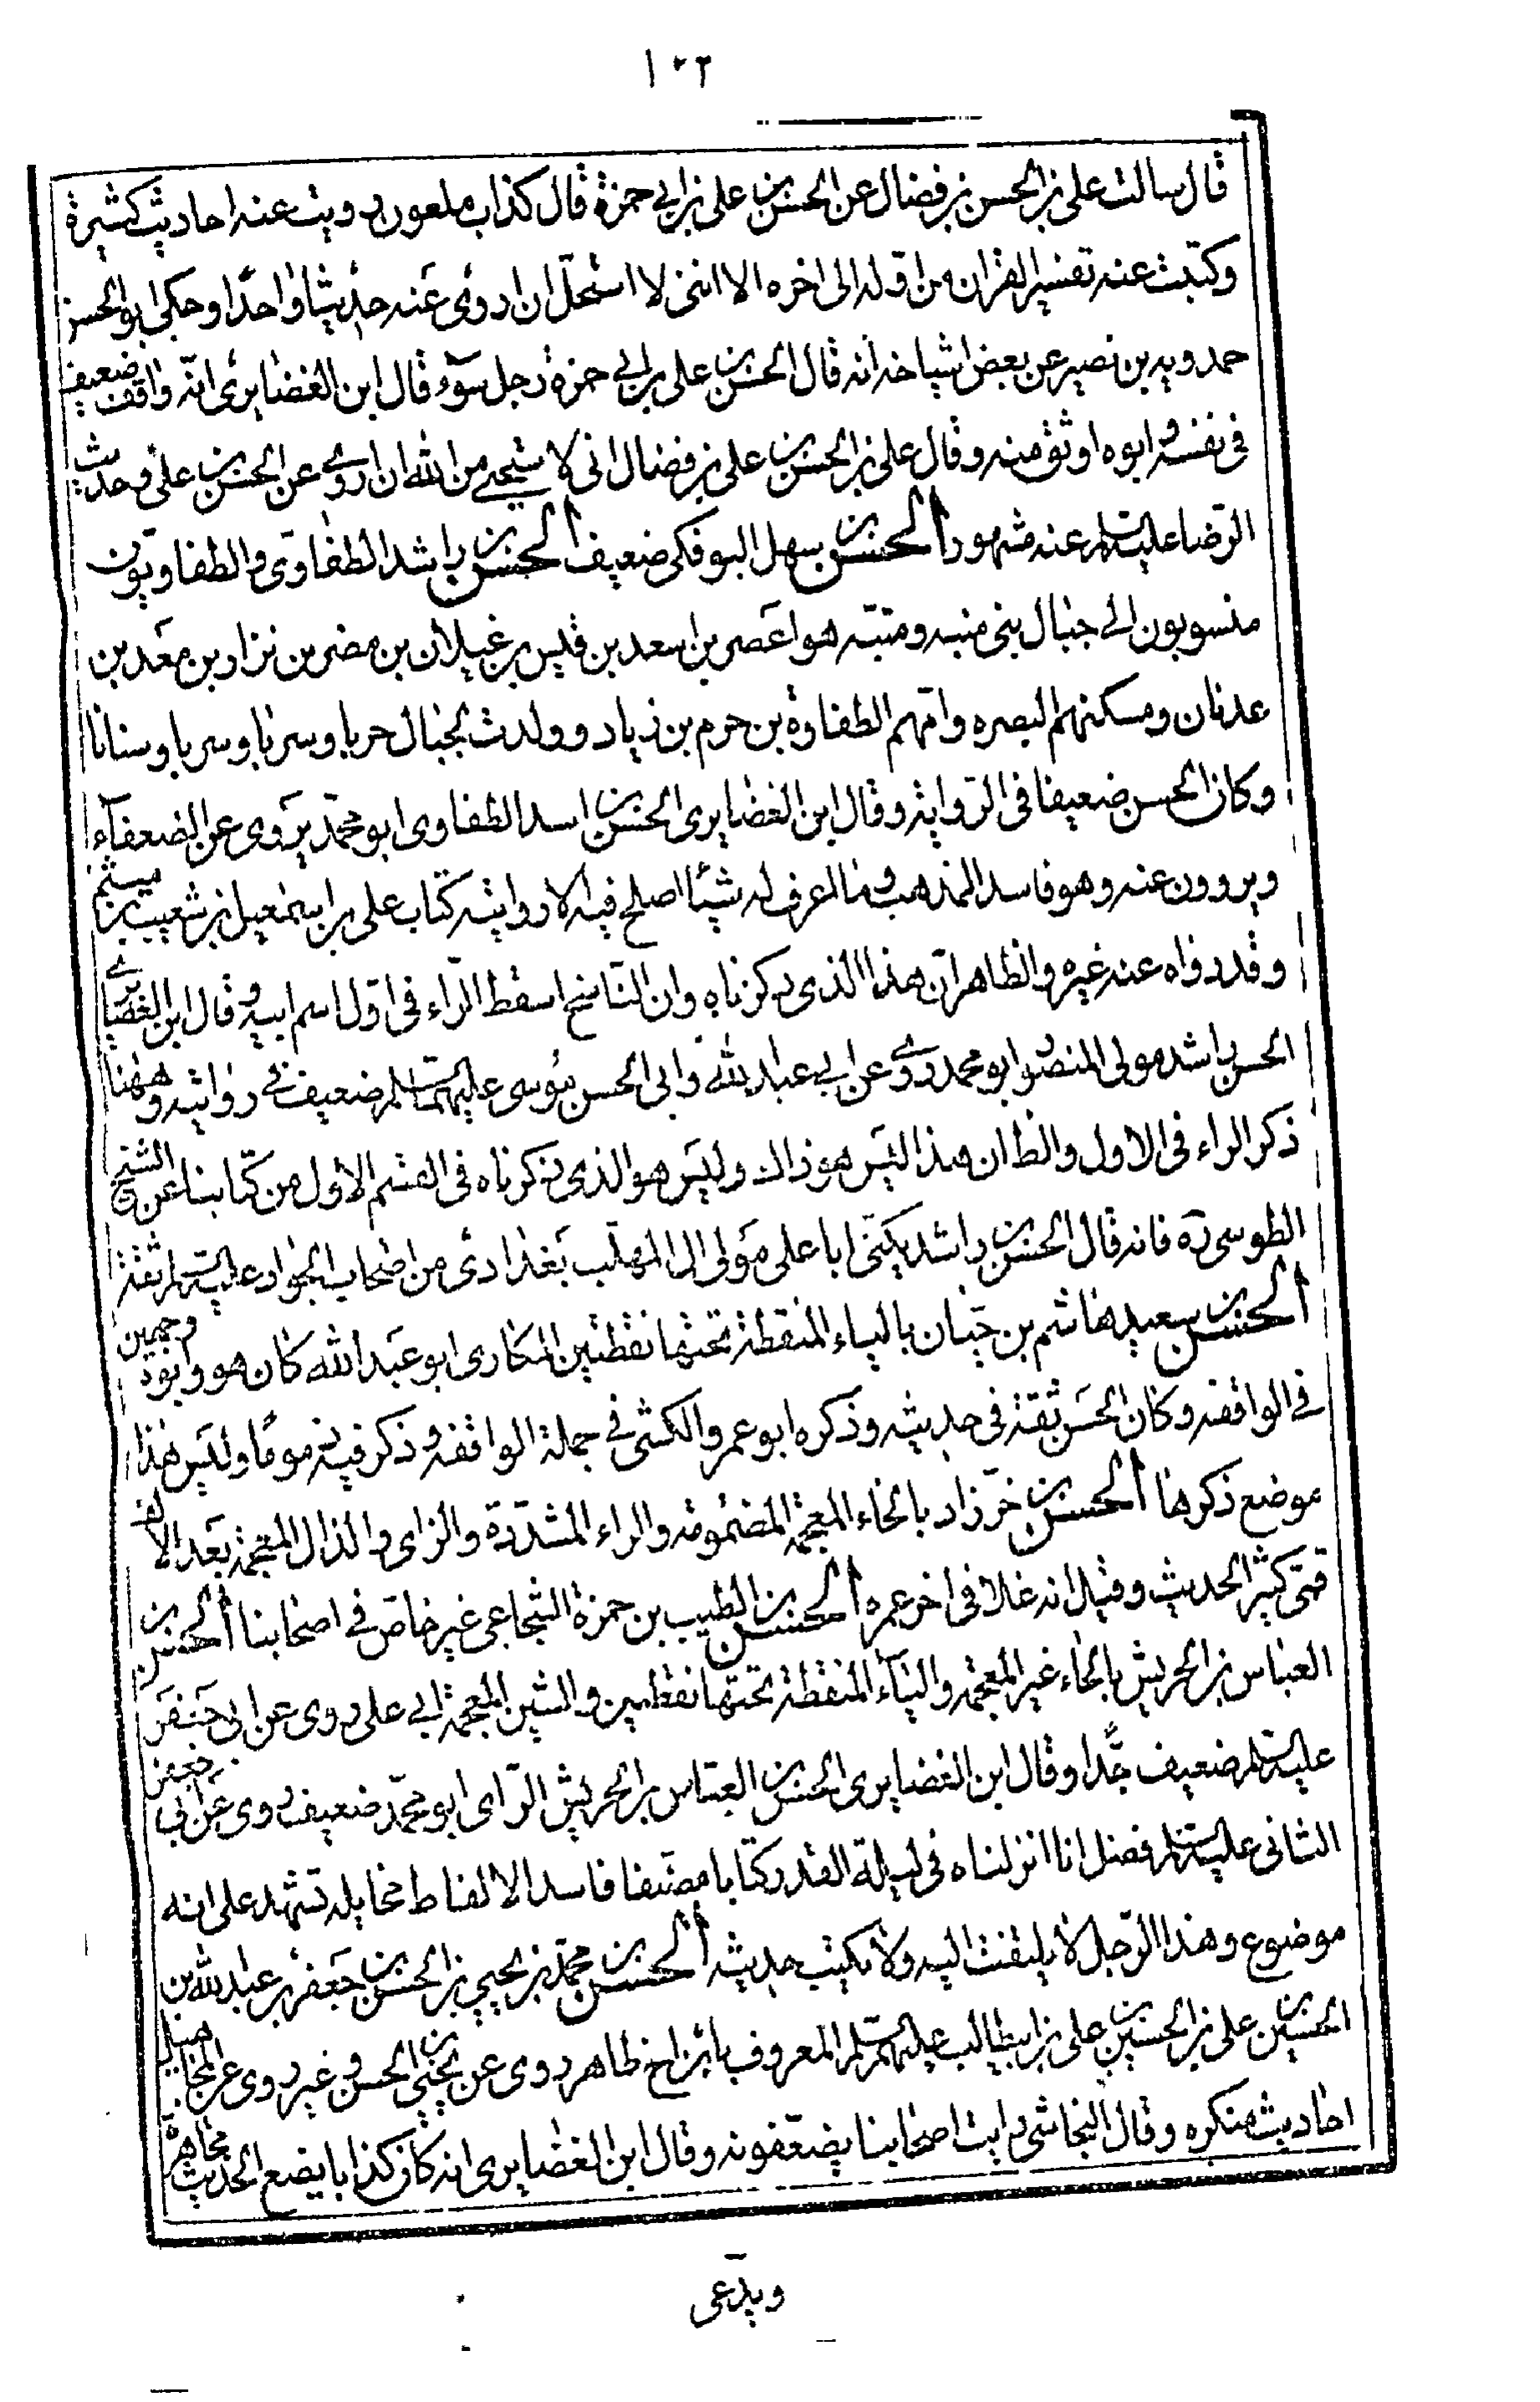 ١٠٢
قال سالت على بن الحسن بن فضال عن الحسن بن على بن ابى حمزة قال كذاب ملعون رويت عنه احاديث كثيرة
وكتبت عنه تفسير القران من اوله الى اخره الا اننى لا استحل ان اروى عنه حديثا واحدا وحكى ابو الحسن
حمدويه بن نصير عن بعض اشياخه انه قال الحسن بن على بن ابى حمزة رجل سوء وقال ابن الغضايرى انه واقف ضعيف
فى نفسه وابوه اوثق منه وقال على بن الحسن بن على بن فضال انى لا ستحيى من الله ان اروى عن الحسن بن على وحديث
الرضا عليه السلم عنه مشهور الحسن بن سهل البوفكى ضعيف الحسن بن راشد الطفاوى والطفاويون
منسوبون الى جبال بنى منبه ومنبه هو اعصر بن اسعد بن قيس بن غيلان بن مضر بن نزار بن معد بن
عدنان ومسكنهم البصره وامهم الطفاوة بن حرم بن زياد وولدت بجبال حريا وسريا وسريا وسنانا
وكان الحسن ضعيفا فى الرواية وقال ابن الغضايرى الحسن بن اسد الطفاوى ابو محمد يروى عن الضعفاء
ويروون عنه وهو فاسد المذهب وما اعرف له شيئا اصلح فيه الا روايته كتاب على بن اسمعيل بن شعيب بن ميثم
وقد رواه عنه غيره والظاهر ان هذا الذى ذكرناه وان الناسخ اسقط الراء فى اول اسم ابيه وقال ابن الغضايرى
الحسن بن راشد مولى المنصور ابو محمد روى عن ابى عبد الله وابى الحسن موسى عليهما السلم ضعيف فى روايته وههنا
ذكر الراء فى الاول والظ ان هذا ليس هو ذاك وليس هو الذى ذكرناه فى القسم الاول من كتابنا عن الشيخ
الطوسى ره فانه قال الحسن بن راشد يكنى ابا على مولى ال المهلب بغدادى من اصحاب الجواد عليه السلم ثقة
الحسن بن سعيد هاشم بن حيان بالياء المنقطة تحتها نقطتين المكارى ابو عبد الله كان هو وابوه وجهين
فى الواقفه وكان الحسن ثقة فى حديثه وذكره ابو عمرو الكشى فى جملة الواقفه وذكر فيه ذموما وليس هذا
موضع ذكرها الحسن بن خرزاد بالخاء المعجمة المضمومة والراء المشددة والزاى والذال المعجمة بعد الالف
قمى كثير الحديث وقيل انه غلا فى اخر عمره الحسن بن الطيب بن حمزة الشجاعى غير خاص فى اصحابنا الحسن بن
العباس بن الحريش بالحاء غير المعجمة والياء المنقطة تحتها نقطتين والشين المعجمة ابى على روى عن ابى جعفر
عليه السلم ضعيف جدا وقال ابن الغضايرى الحسن بن العباس بن الحريش الرازى ابو محمد ضعيف روى عن ابى جعفر
الثانى عليه السلم فضل انا انزلناه فى ليلة القدر كتابا مصنفا فاسد الالفاظ مخايله تشهد على انه
موضوع وهذا الرجل لا يلتفت اليه ولا يكتب حديثه الحسن بن محمد بن يحيى بن الحسن بن جعفر بن عبد الله بن
الحسين بن على بن الحسين بن على بن ابيطالب عليهم السلم المعروف بابن اخى طاهر روى عن يحيى بن الحسن وغيره روى عن المجاهيل
احاديث منكره وقال النجاشى رايت اصحابنا يضعفونه وقال ابن الغضايرى انه كان كذابا يضع الحديث مجاهرة
ويدعى